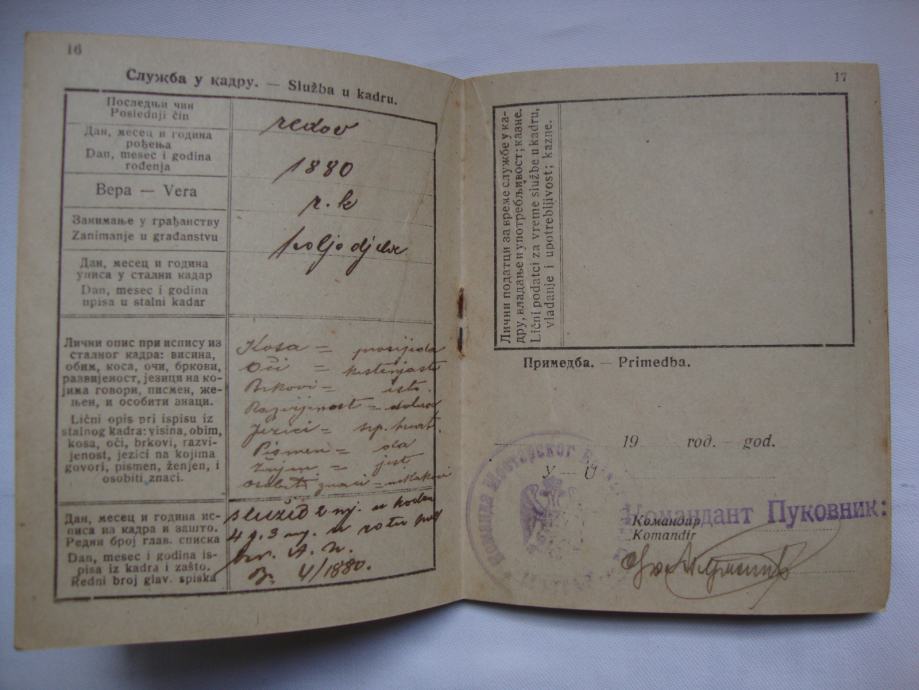 16
Служба у кадру. — Služba u kadru.
Последњи чин
Poslednji čin
redov
Дан, месец и година
рођења
Dan, mesec i godina
rođenja
1880
Вера — Vera
r. k
Занимање у грађанству
Zanimanje u građanstvu
poljodjelac
Дан, месец и година
уписа у стални кадар
Dan, mesec i godina
upisa u stalni kadar
Лични опис при испису из
сталног кадра: висина,
обим, коса, очи, бркови,
развијеност, језици на ко-
јима говори, писмен, же-
њен, и особити знаци.
Lični opis pri ispisu iz
stalnog kadra: visina, obim,
kosa, oči, brkovi, razvi-
jenost, jezici na kojima
govori, pismen, ženjen, i
osobiti znaci.
Kosa = prosijeda
Oči = kestenjaste
Brkovi = isto
Razvijenost = dobra
Jezici = srp. hrvat.
Pismen = da
Ženjen = jest
Osobiti znaci = nikakovi
Дан, месец и година ис-
писа из кадра и зашто.
Редни број глав. списка
Dan, mesec i godina is-
pisa iz kadra i zašto.
Redni broj glav. spiska
služio 2 mj. u
4 g. 3 mj. u
4/1880.
17
Лични податци за време службе у ка-
дру, владање и употребљивост; казне.
Lični podatci za vreme službe u kadru,
vladanje i upotrebljivost; kazne.
Примедба. — Primedba.
19 год. — god.
У — U
КОМАНДА МОСТАРСКОГ
Командант Пуковник:
Командир
Komandir